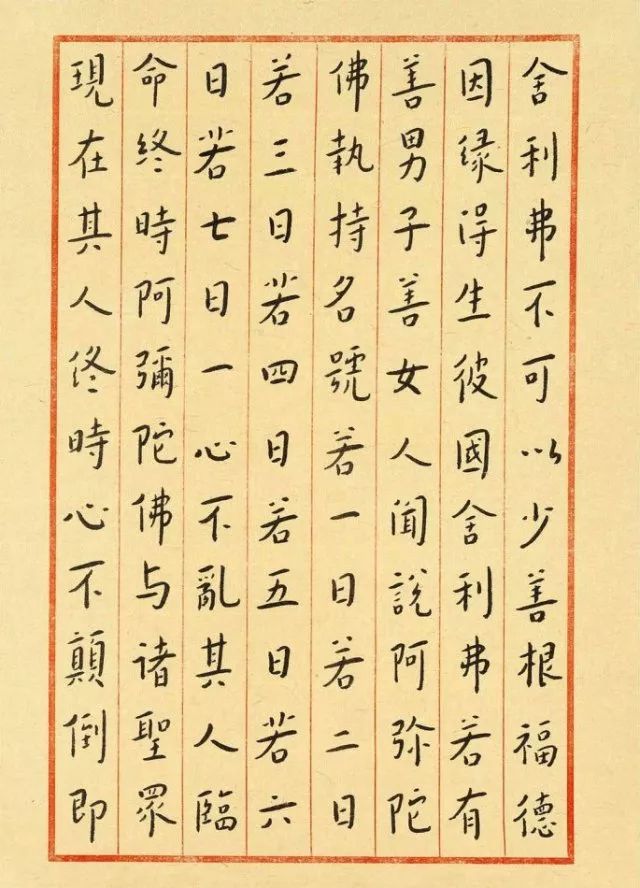 舍利弗不可以少善根福德
因緣得生彼國舍利弗若有
善男子善女人聞說阿弥陀
佛執持名號若一日若二日
若三日若四日若五日若六
日若七日一心不亂其人臨
命終時阿彌陀佛与诸聖眾
現在其人終時心不顛倒即